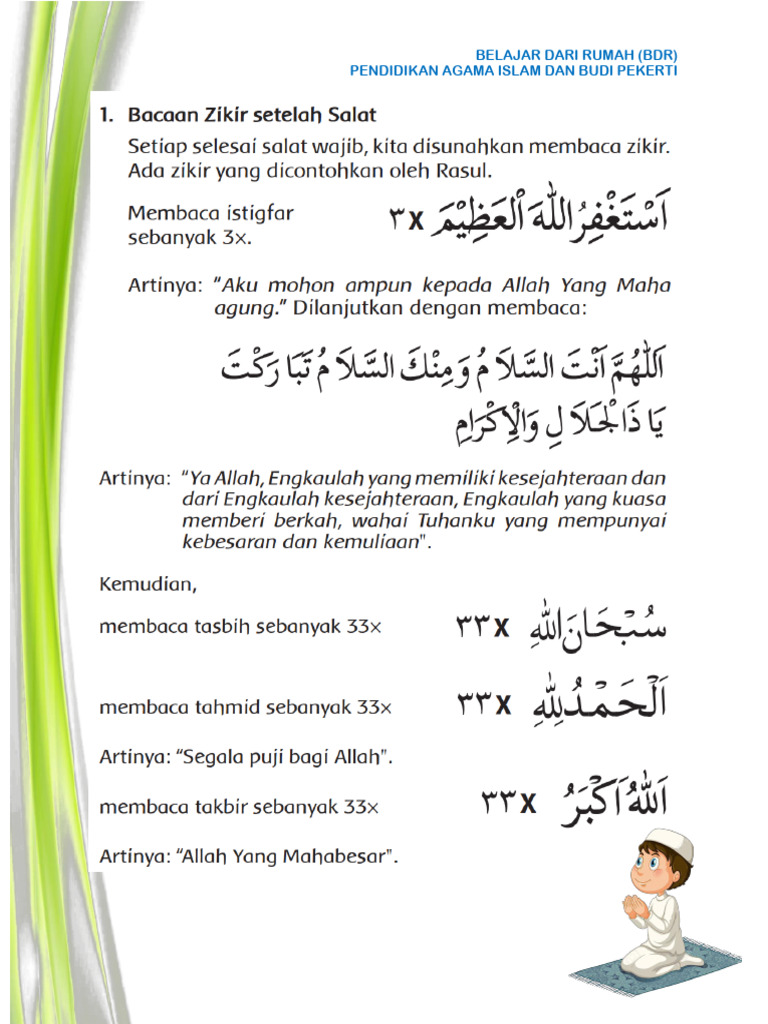 BELAJAR DARI RUMAH (BDR)
PENDIDIKAN AGAMA ISLAM DAN BUDI PEKERTI
1. Bacaan Zikir setelah Salat
Setiap selesai salat wajib, kita disunahkan membaca zikir.
Ada zikir yang dicontohkan oleh Rasul.
Membaca istigfar
sebanyak 3×.
اَسْتَغْفِرُ اللهَ الْعَظِيْمَ ٣X
Artinya: “Aku mohon ampun kepada Allah Yang Maha
agung.” Dilanjutkan dengan membaca:
اَللّٰهُمَّ اَنْتَ السَّلاَ مُ وَمِنْكَ السَّلاَ مُ تَبَا رَكْتَ
يَا ذَاالْجَلاَ لِ وَالْاِكْرَامِ
Artinya: “Ya Allah, Engkaulah yang memiliki kesejahteraan dan
dari Engkaulah kesejahteraan, Engkaulah yang kuasa
memberi berkah, wahai Tuhanku yang mempunyai
kebesaran dan kemuliaan”.
Kemudian,
membaca tasbih sebanyak 33× سُبْحَانَ اللهِ ٣٣X
membaca tahmid sebanyak 33× اَلْحَمْدُ لِلّٰهِ ٣٣X
Artinya: “Segala puji bagi Allah”.
membaca takbir sebanyak 33× اَللهُ اَكْبَرُ ٣٣X
Artinya: “Allah Yang Mahabesar”.